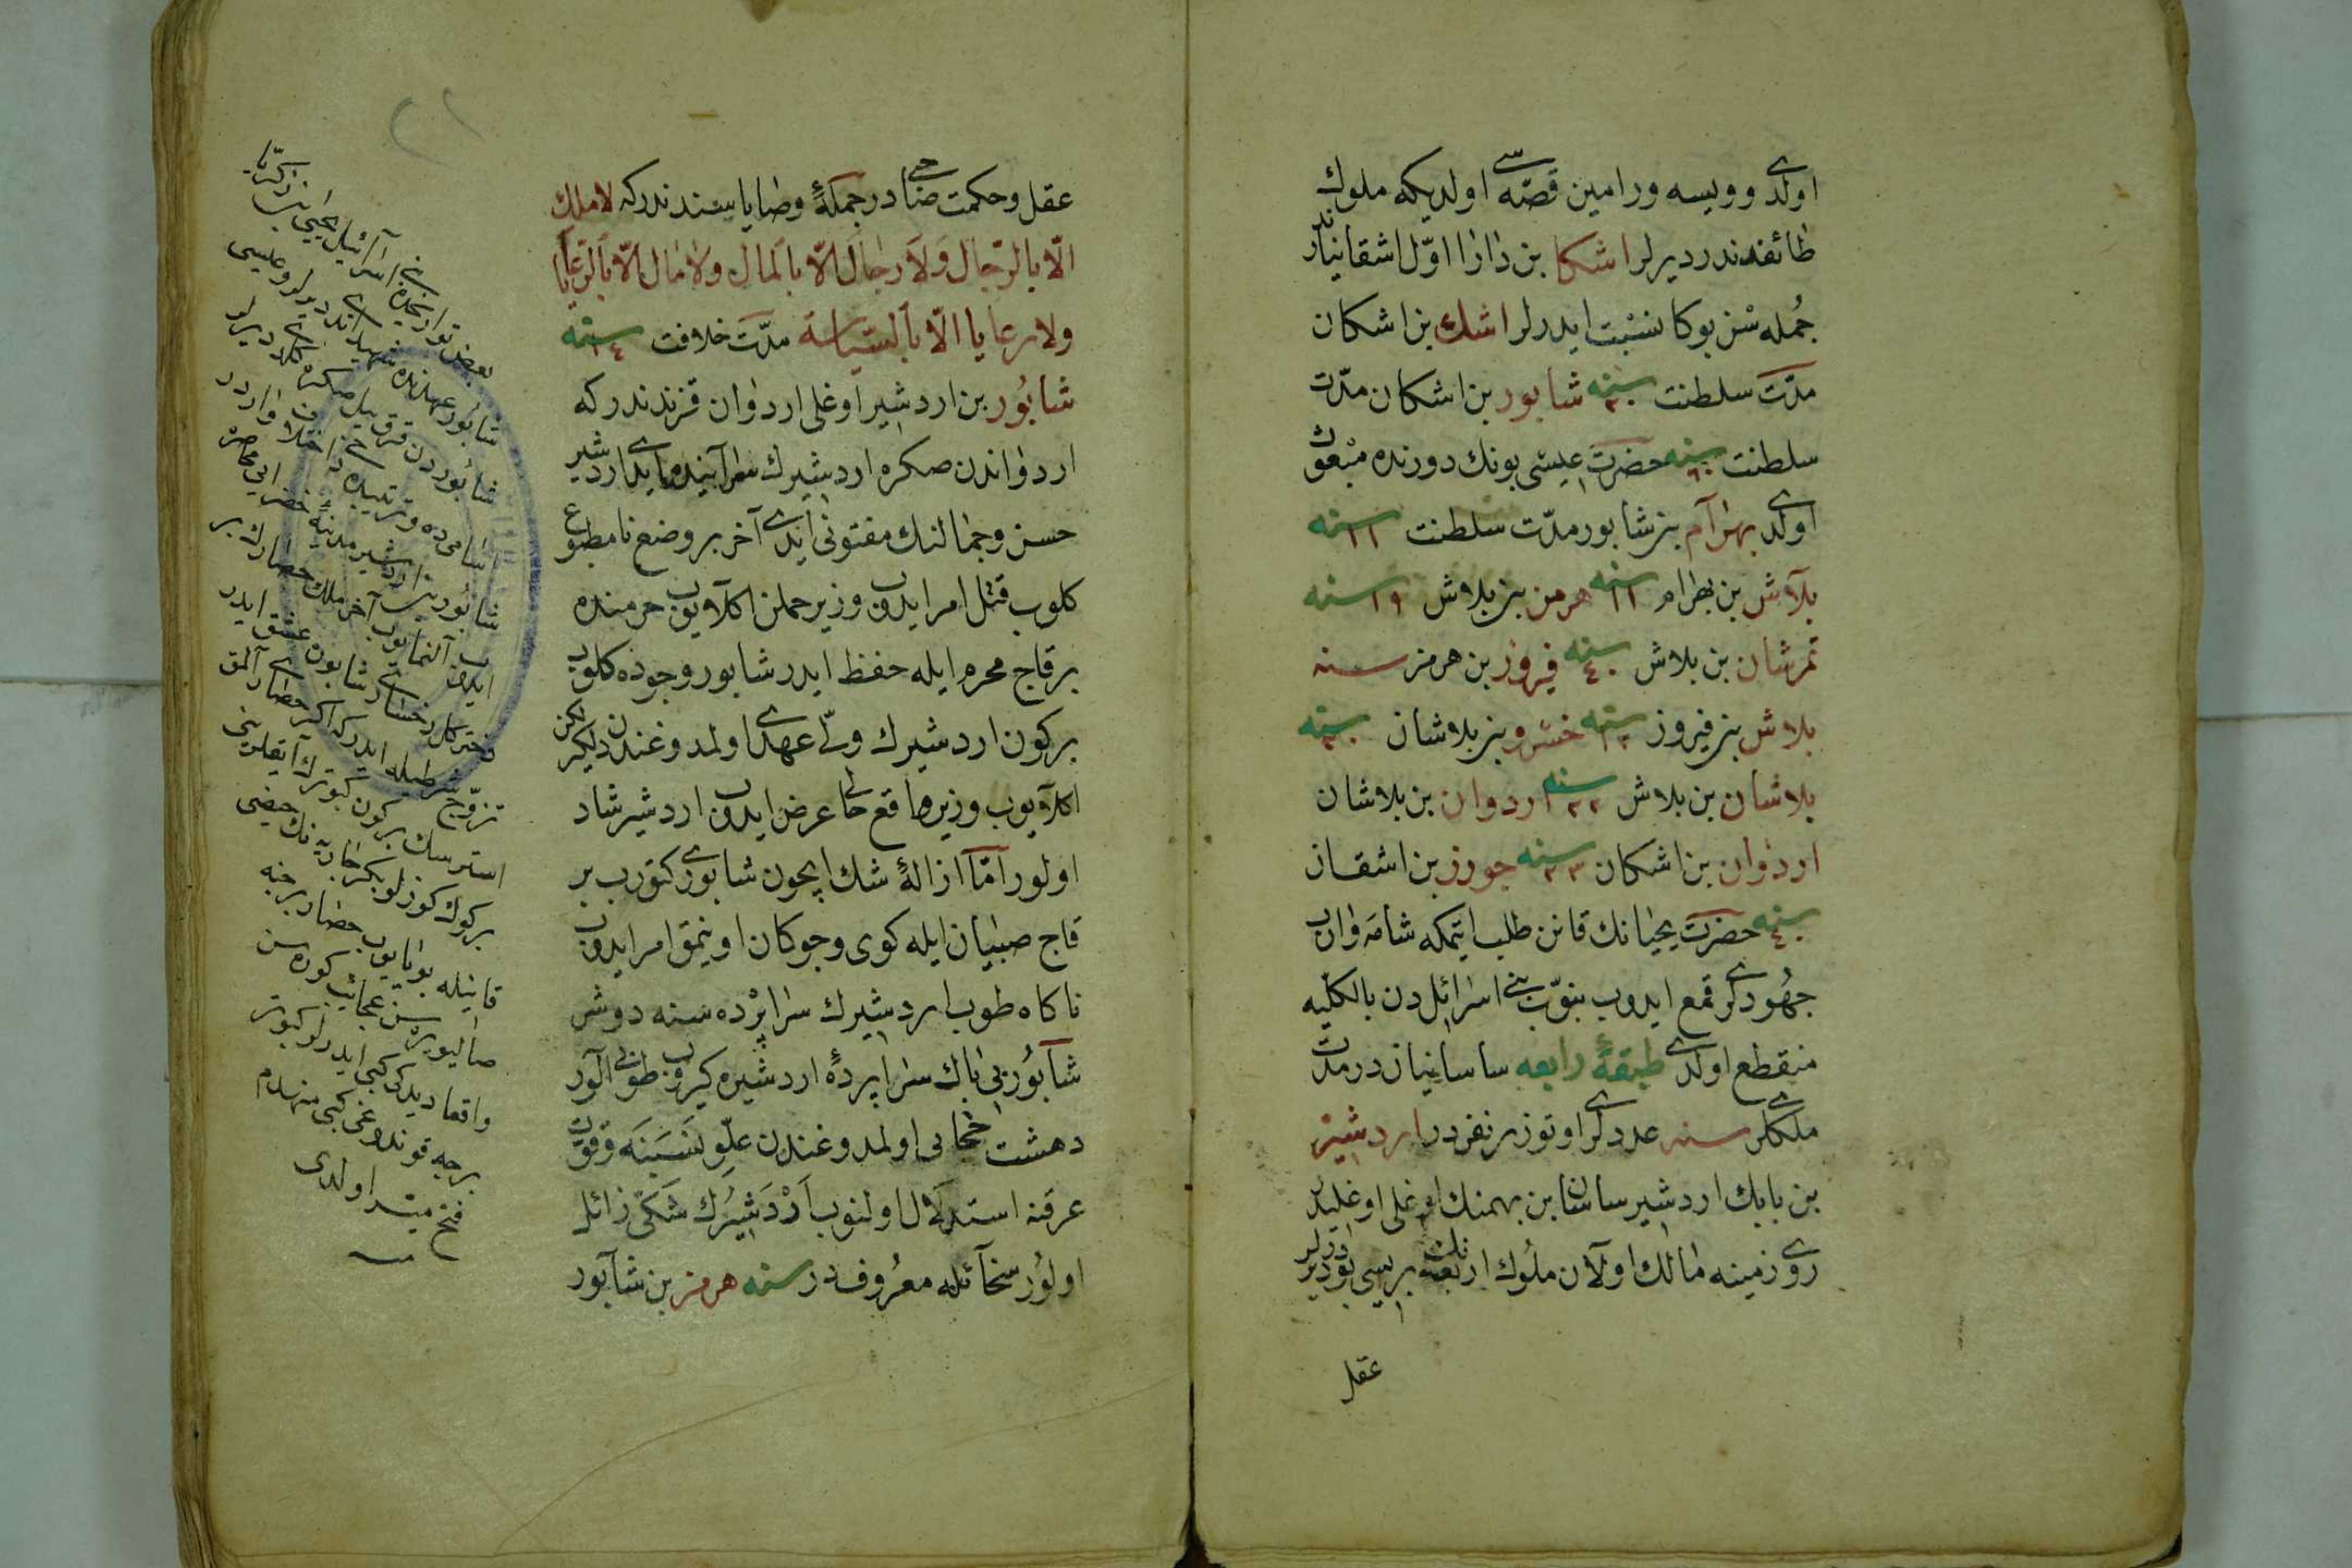 اولدی وویسه ورامین قصّه سی اولدیکه ملوك
طائفندندر دیرلر اشکا بن دارا اوّل اشقانیاندر
جُمله سْن بوکا نسْبت ایدرلر اشك بن اشکان
مدّت سلطنت سنه شابور بن اشکان مدّت
سلطنت سنه ٦٠ حضرت عیسی بونك دورنده مبْعوث
اولدی بهرام بن شابور مدّت سلطنت ١١ سنه
بلاش بن بهرام ١١ سنه هرمز بن بلاش ١٩ سنه
نرشان بن بلاش ٤٠ سنه فیروز بن هرمز سنه
بلاش بن فیروز سنه خسْرو بن بلاشان سنه
بلاشان بن بلاش ٢٢ سنه اردوان بن بلاشان
اردوان بن اشکان ٢٣ سنه جورز بن اشقان
سنه حضرت یحیانك قانن طلب ایتمکه شامه واروب
جهُودلری قمع ایدوب نبوّت بنی اسرائیل دن بالکلّیه
منقطع اولدی طبقهٔ رابعه ساسانیاندر مدّت
ملکلری سنه عددلری اوتوز بر نفردر اردشیر
بن بابك اردشیر ساسان بن بهمنك اوغلی اوغلیدر
روی زمینه مالك اولان ملُوك اربعه نك بریسی بودر دیرلر
عقل
عقل وحکمت صاحبی در جمکهٔ وصایاسندندرکه لا ملك
الّا بالرّجال ولا رجال الّا بالمال ولا مال الّا بالرّعایا
ولا رعایا الّا بالسّیاسة مدّت خلافت ١٤ سنه
شابُور بن اردشیر اوغلی اردوان قزندندرکه
اردواندن صکره اردشیرك سراینده ایدی اردشیر
حسن وجمالنك مفتونی ایدی آخر بر وضع نامطبوع
کلوب قتل امر ایدوب وزیر حملن اکلایوب حرمنده
بر قاج محرم ایله حفظ ایدر شابور وجوده کلوب
بر کون اردشیرك ولیّ عهدی اولمدوغندن دلکیرلکن
اکلایوب وزیر واقع حالی عرض ایدوب اردشیر شاد
اولور امّا ازالهٔ شك ایچون شابوری کتورب بر
قاج صبیان ایله کوی وچوکان اوینمق امر ایدوب
ناکاه طوب اردشیرك سراپرْده سنه دوشر
شابُور بی باك سراپردهٔ اردشیره کیروب طوبی آلور
دهشت حجابی اولمدوغندن علوّ نسبنه وقوّت
عرقنه استدلال اولنوب اردشیرك شکّی زائل
اولُور سخائله معرُوفدر سنه هرمز بن شابور
بعض تواریخده بنی اسرائیل یحیی بن زکریّا
شابُور عهدنده شهید ایتدیلر دیرلر وعیسی
شابُوردن قرق ییل صکره کلدی دیرلر
اسامی ده وترتیبده دخی اختلاف واردر
شابُور بن اردشیر مدینهٔ خضر ایی محاصره
ایدوب آلنمایوب آخر ملك حضارك بر
دختر کلرخساری شابوره عشق ایدر
تزوّج شرطیله ایدرکه اکر حصاری آلمق
استرسك بر کون کبوترك ایقلرینی
بر کوك کوزلو بکر خاتونك حیضی
قانیله بویایوب حصار برجنه
صالیویره سن عجائب کوره سن
واقعا دیدکی کبی ایدرلر کبوتر
برجه قوندوغی کبی منهدم
فتح میسّر اولدی